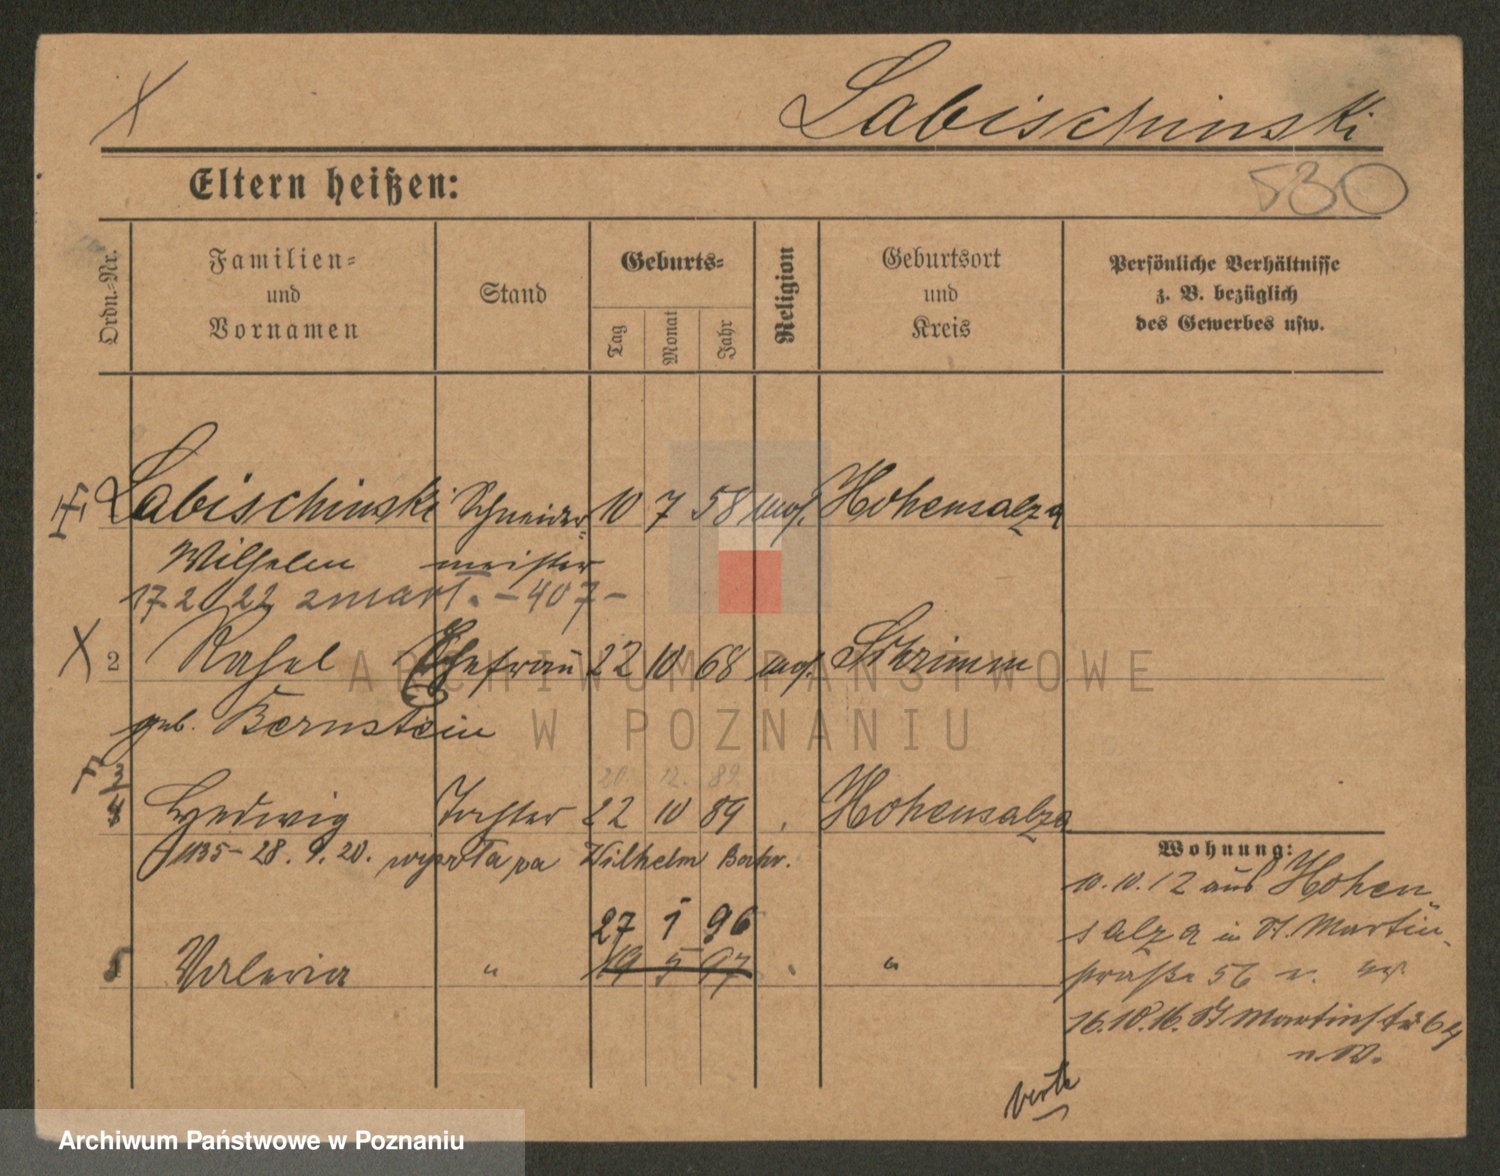 Labischinski
Eltern heißen:
530
Ordn.-Nr.
Familien-
und
Vornamen
Stand
Geburts-
Tag
Monat
Jahr
Religion
Geburtsort
und
Kreis
Persönliche Verhältnisse
z. B. bezüglich
des Gewerbes usw.
Labischinski Schneider- 10 7 58 mos. Hohensalza
Wilhelm meister
17.2.22 zmarł. - 407 -
2 Rahel Ehefrau 22 10 68 mos. Schrimm
geb. Bernstein
20. 12. 89
Hedwig Tochter 22 10 89 Hohensalza
1135 - 28. 9. 20. Wilhelm
27 1 96
Valeria " 19 5 97 "
Wohnung:
10.10.12 aus Hohen
salza in St. Martin-
straße 56
16.10.16. St Martinstr 64
verte
ARCHIWUM PAŃSTWOWE
W POZNANIU
Archiwum Państwowe w Poznaniu